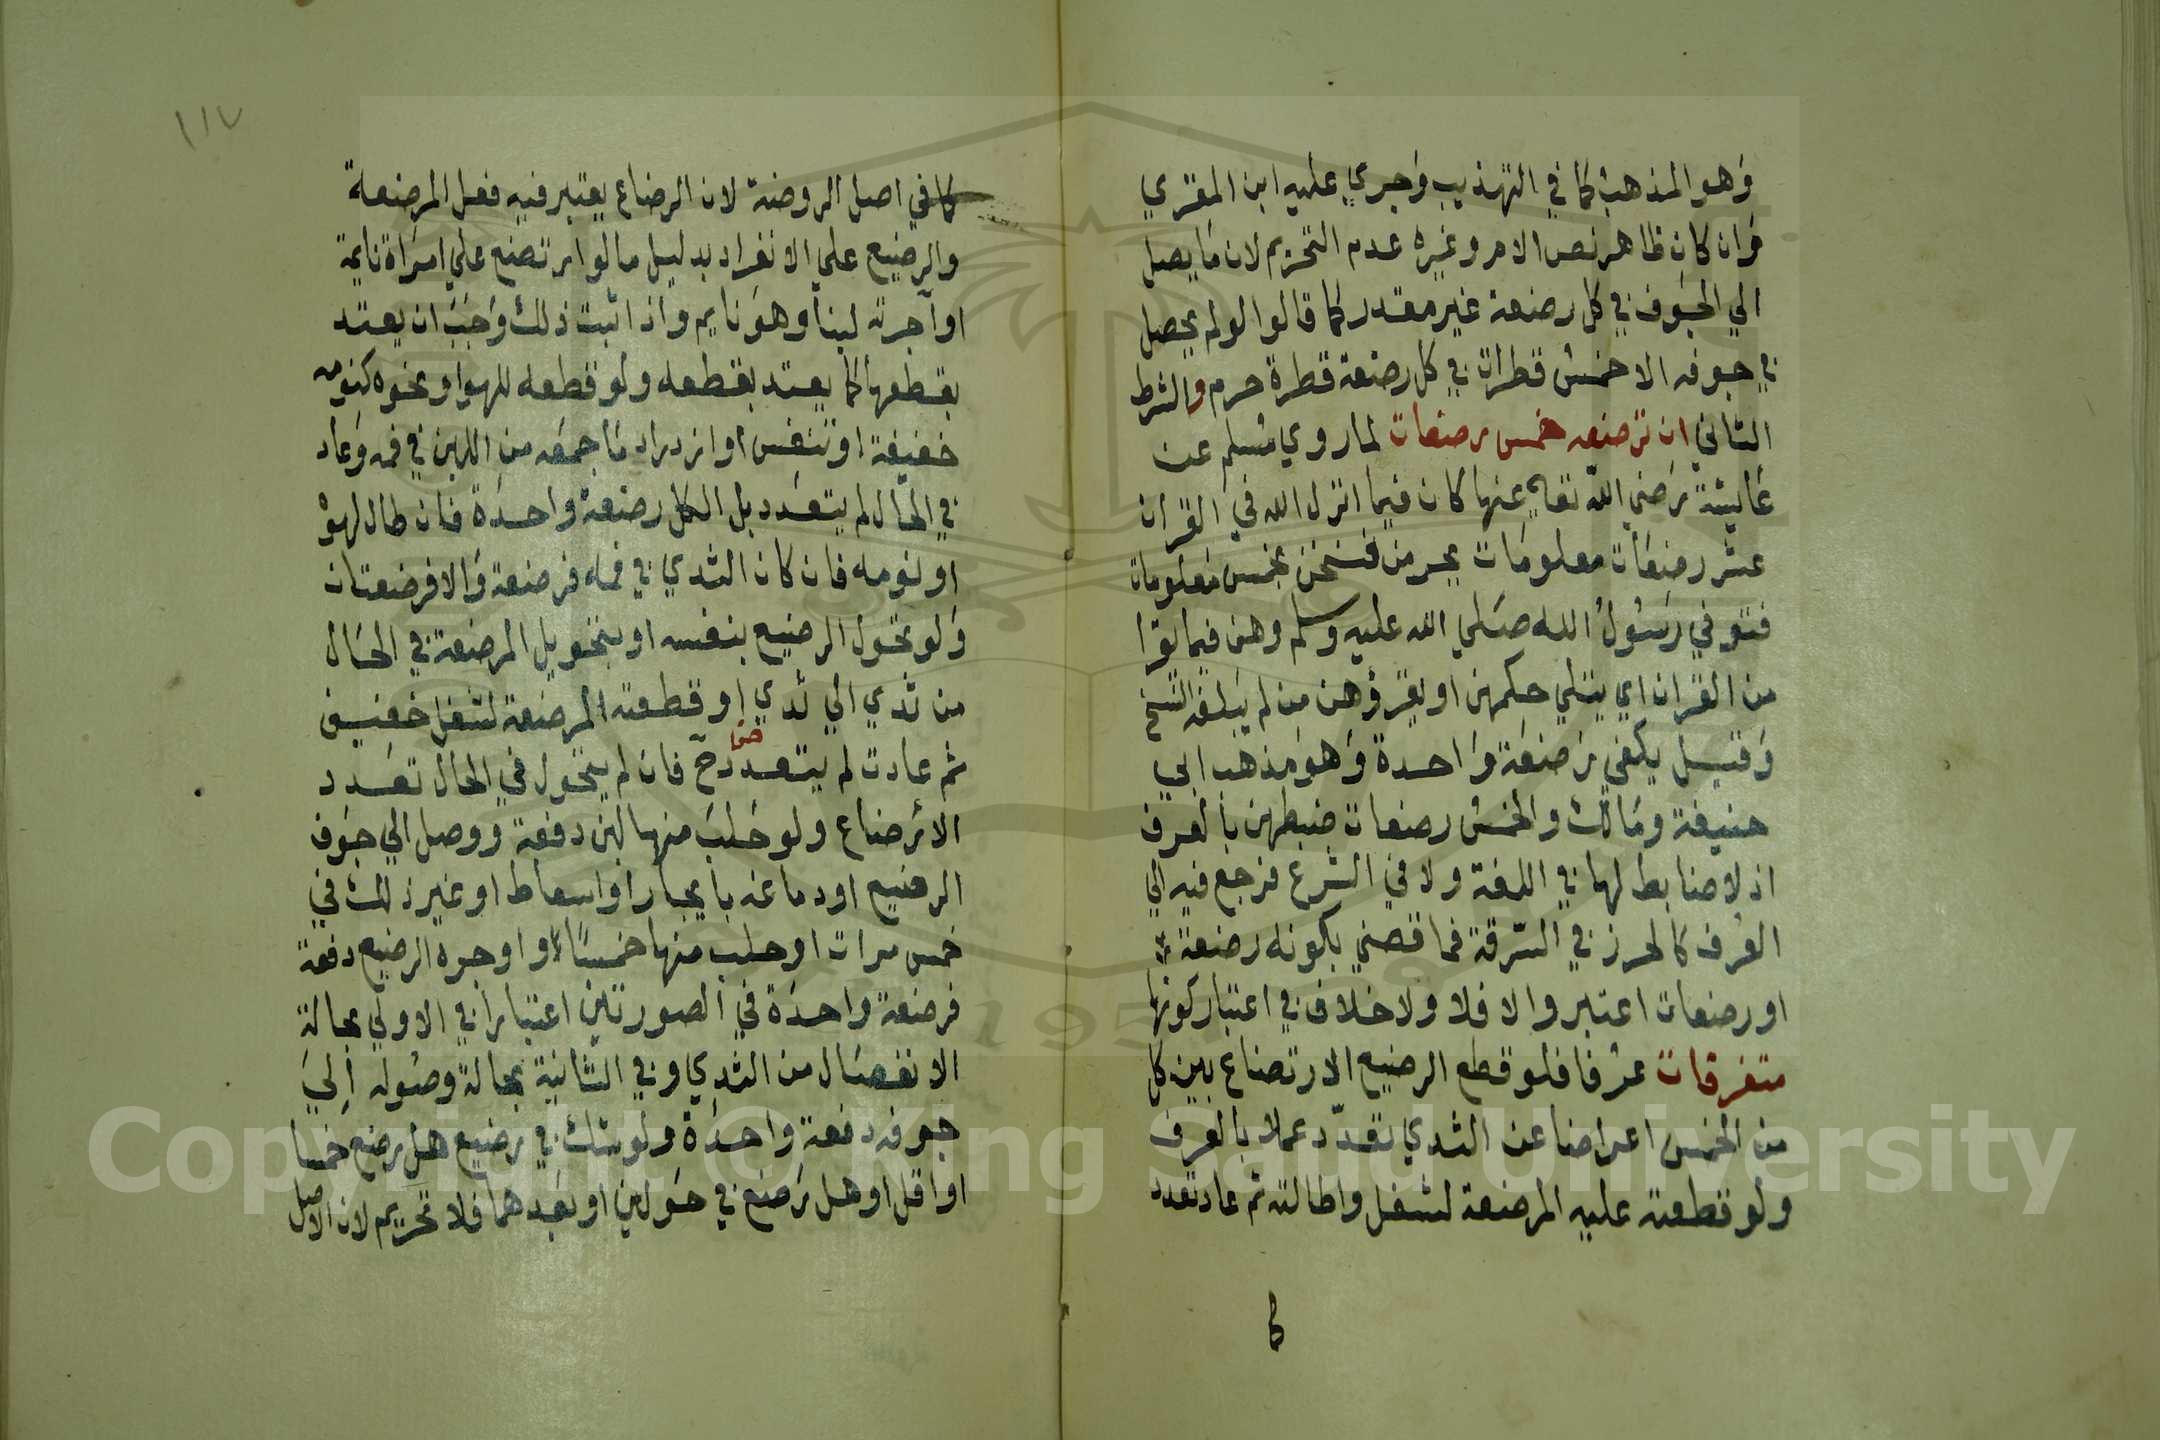 وهو المذهب كما في التهذيب وجري عليه ابن المقري
وان كان ظاهر نص الام وغيره عدم التحريم لان ما يصل
الي الجوف في كل رضعة غير مقدر كما قالوا لو لم يحصل
في جوفه الا خمس قطرات في كل رضعة قطرة حرم والشرط
الثاني ان ترضعه خمس رضعات لما روي مسلم عن
عايشة رضي الله تعالي عنها كان فيما انزل الله في القران
عشر رضعات معلومات يحرمن فنسخن بخمس معلومات
فتوفي رسول الله صلي الله عليه وسلم وهن فيما يقرا
من القران اي يتلي حكمهن او يقرؤهن من لم يبلغه النسخ
وقيل يكفي رضعة واحدة وهو مذهب ابي
حنيفة ومالك والخمس رضعات ضبطهن بالعرف
اذ لا ضابط لها في اللغة ولا في الشرع فرجع فيه الي
العرف كالحرز في السرقة فما قضي بكونه رضعة
او رضعات اعتبر والا فلا ولا خلاف في اعتبار كونها
متفرقات عرفا فلو قطع الرضيع الارتضاع بين كل
من الخمس اعراضا عن الثدي تعدد عملا بالعرف
ولو قطعته عليه المرضعة لشغل واطالته ثم عاد تعدد
كما
١١٧
كما في اصل الروضة لان الرضاع يعتبر فيه فعل المرضعة
والرضيع علي الانفراد بدليل ما لو ارتضع علي امراة نايمة
او آجرته لبنا وهو نايم واذا ثبت ذلك وجب ان يعتد
بقطعها كما يعتد بقطعه ولو قطعه للهوا ونحوه كنومه
خفيفة او تنفس او ازدراد ما جمعه من اللبن في فمه وعاد
في الحال لم يتعدد بل الكل رضعة واحدة فان طال لهوه
او نومه فان كان الثدي في فمه فرضعة والا فرضعتان
ولو تحول الرضيع بنفسه او بتحويل المرضعة في الحال
من ثدي الي ثدي او قطعته المرضعة لشغل خفيف
ثم عادت لم يتعدد ح فان لم يتحول في الحال تعدد
الارضاع ولو حلب منها لبن دفعة ووصل الي جوف
الرضيع او دماغه بايجار او اسعاط او غير ذلك في
خمس مرات او حلب منها خمسا واوجره الرضيع دفعة
فرضعة واحدة في الصورتين اعتبارا في الاولي بحالة
الانفصال من الثدي وفي الثانية بحالة وصوله الي
جوفه دفعة واحدة ولو شك في رضيع هل رضع خمسا
او اقل او هل رضع في حولين او بعدهما فلا تحريم لان الاصل
Copyright © King Saud University